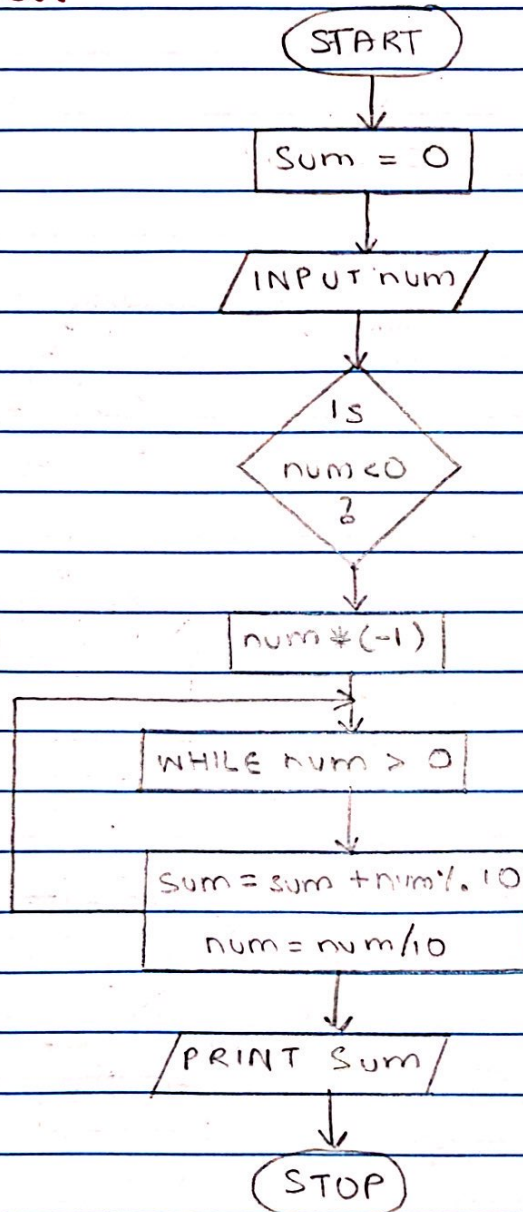 START
Sum = 0
INPUT num
Is
num<0
?
num*(-1)
WHILE num > 0
Sum = sum + num%10
num = num/10
PRINT Sum
STOP